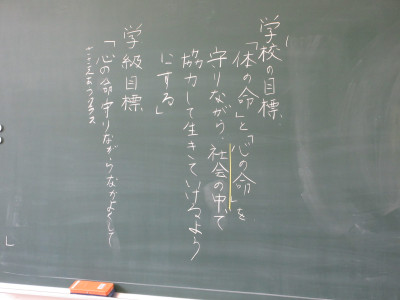 学校の目標
「体の命」と「心の命」を
守りながら、社会の中で
協力して生きていけるよう
にする」
学級目標
「心の命守りながらなかよくして
ささえあうクラス
」